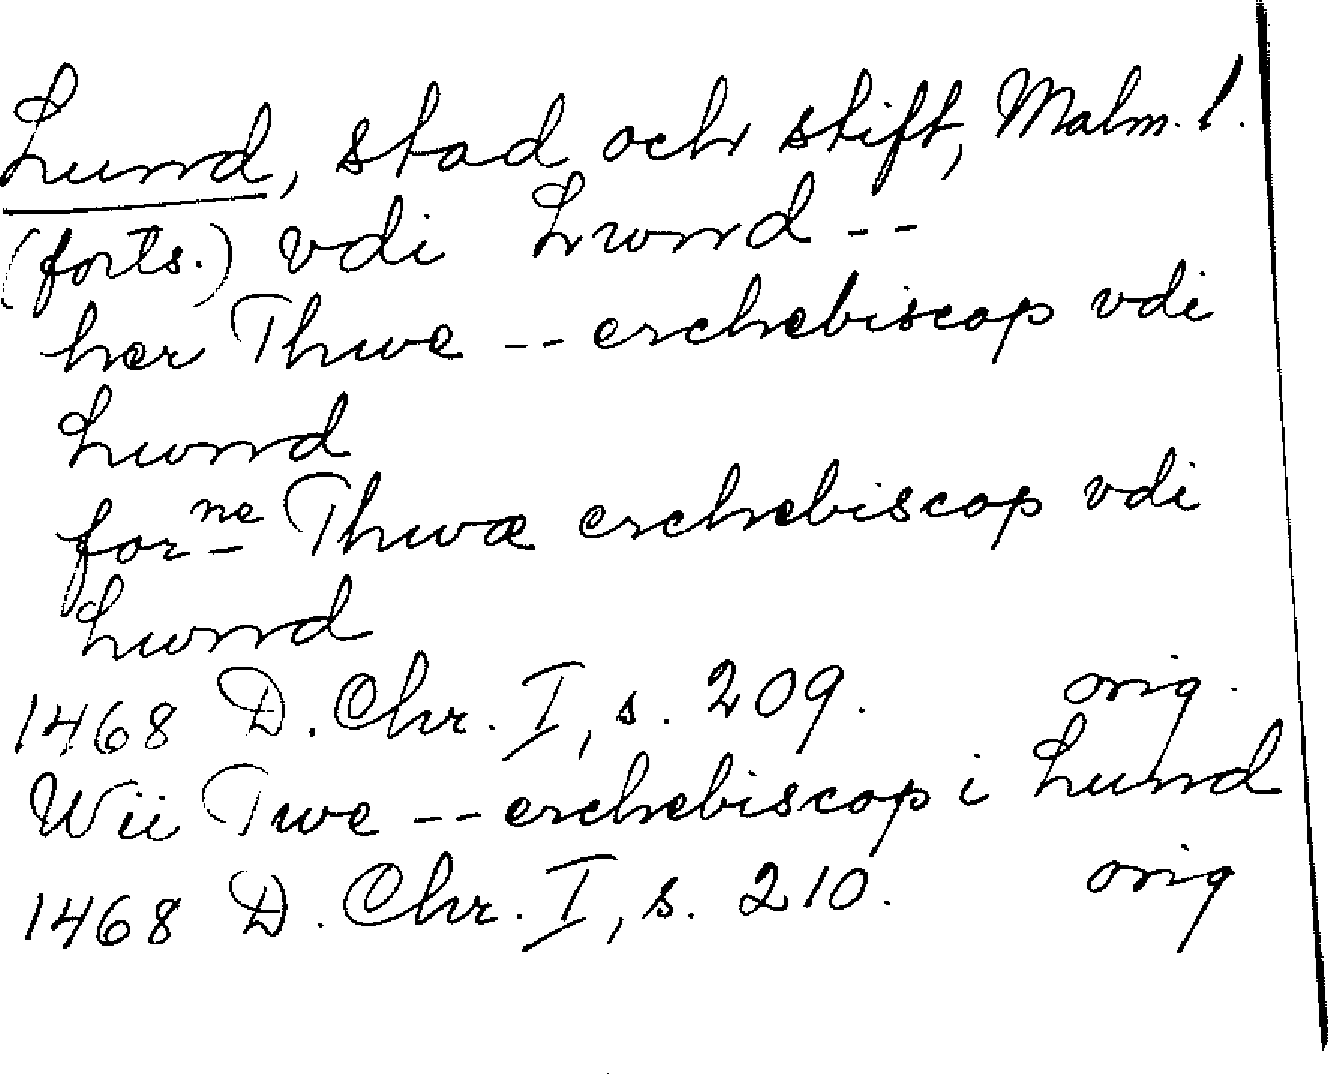 Lund, stad och stift, Malm. l.
(forts.) vdi Lwnd --
her Thwe -- erchebiscop vdi
Lwnd
for ne Thwæ erchebiscop vdi
Lwnd
1468 D. Chr. I, s. 209. orig.
Wii Twe -- erchebiscop i Lund
1468 D. Chr. I, s. 210. orig